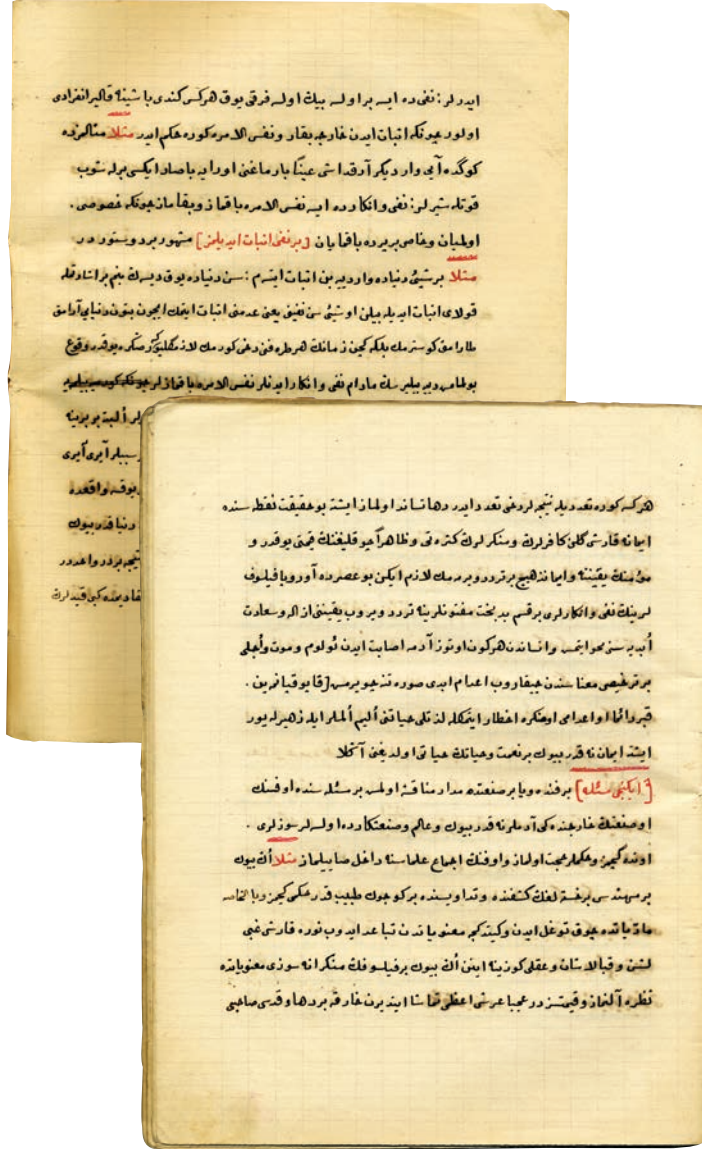 ايدرلر: نفى ده ايسه بر اولسه بيك اولسه فرقى يوق هركس كندى باشينه قالير انفرادى
اولور چونكه اثبات ايدن خارجه بقار ونفس الامره كوره حكم ايدر مثلا مثالمزده
كوگده آيى وار ديكر آرقداشى عينًا پارماغنى اورايه باصار ايكسى برلشوب
قوتلشيرلر: نفى وانكارده ايسه نفس الامره باقماز وبقاماز چونكه خصوصى .
اولميان وخاص بر يره باقمايان [بر نفى اثبات ايديلمز] مشهور بر دوستوردر
مثلا بر شيئى دنياده وار دييه بن اثبات ايتسم : سن دنياده يوق ديسه ك بنم بر اشارتمله
قولاى اثبات ايديله بيلن او شيئى سن نفينى يعنى عدمنى اثبات ايتمك ايچون بتون دنيايى آرامق
طارامق كوسترمك بلكه كچن زمانك هر طرفنى دخى كورمك لازمكلير صكره يوقدر وقوع
بولمامش دييه بيليرسك مادام نفى وانكار ايدنلر نفس الامره باقمازلر
لر ألبته بربرينه
سببلر آيرى آيرى
واقعده
دنيا قدر بيوك
نتيجه بردر واحددر
كبى قيدلرك
هركسه كوره تعدديله نتيجه لر دخى تعدد ايدر دها تساند اولماز ايشته بو حقيقت نقطه سنده
ايمانه قارشى گلن كافرلرك ومنكرلرك كثرتى وظاهراً چوقلغنك قيمتى يوقدر و
مؤمنك يقيننه وايماننه هيچ بر تردد ويرمه مك لازم ايكن بو عصرده آوروپا فيلسوف
لرينك نفى وانكارلرى بر قسم بدبخت مفتونلرينه تردد ويروب يقيننى ازاله وسعادت
أبديه سنى محو ايتمش وانساندن هركون اوتوز آدمه اصابت ايدن ئولوم وموت وأجلى
بر ترخيص معناسندن چيقاروب اعدام ابدى صورتنه چويرمش قاپوسى قپانمايان .
قبر دائما او اعدامى او منكره اخطار ايتمكله لذتلى حياتنى أليم ألملر ايله زهيرله يور
ايشته ايمان نه قدر بيوك بر نعمت وحياتك حياتى اولديغنى آگلا
[ايكنجى مسئله] بر فنده ويا بر صنعتده مدار مناقشه اولمش بر مسئله سنده او فنك
او صنعتك خارجنده كى آدملر نه قدر بيوك وعالم وصنعتكارده اولسه لر سوزلرى .
اونده كچمز وحكملرى حجت اولماز وفنك اجماع علماسنه داخل صاييلماز مثلا أڭ بيوك
بر مهندسى بر خسته لغك كشفنده وتداويسنده بر كوچوك طبيب قدر حكمى كچمز وبالخاصه
مادياتده چوق توغل ايدن وكيتدكجه معنوياتدن تباعد ايدوب نوره قارشى غبى
لشن وقبالاشان وعقلى كوزينه اينن أڭ بيوك بر فيلسوفك منكرانه سوزى معنوياتده
نظره آلنماز وقيمتسزدر عجبا عرش اعظمى تماشا ايدن بر خارقه بر دها وقدسى صاحبى